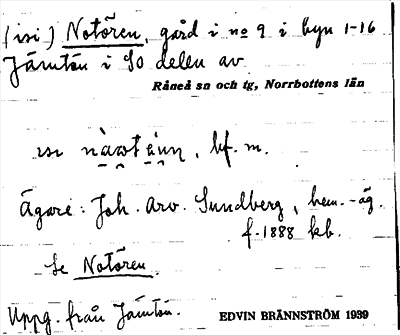 (isi) Notören, gård i no 9 i byn 1-16
Jämtön i SO delen av
Råneå sn och tg, Norrbottens län
bf. m.
Ägare: Joh. Arv. Sundberg, hem.-äg.
f. 1888 kb.
Se Notören.
Uppg. från Jämtön.
EDVIN BRÄNNSTRÖM 1939